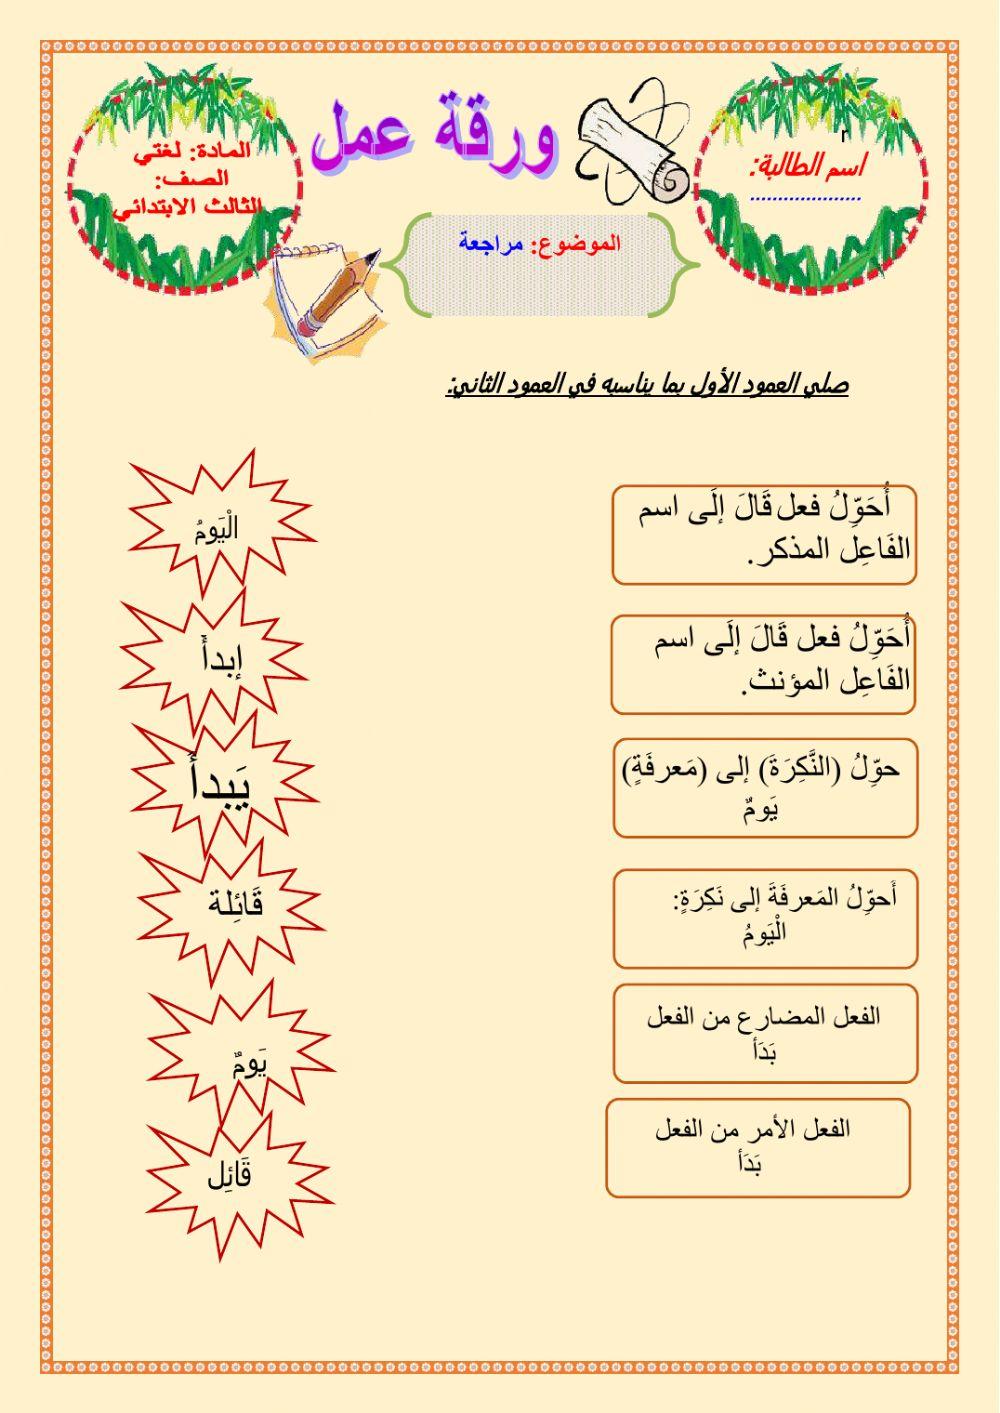 اسم الطالبة:
....................
ورقة عمل
المادة: لغتي
الصف:
الثالث الابتدائي
الموضوع: مراجعة
صلي العمود الأول بما يناسبه في العمود الثاني:
أُحَوِّلُ فعل قَالَ إلَى اسم
الفَاعِل المذكر.
أُحَوِّلُ فعل قَالَ إلَى اسم
الفَاعِل المؤنث.
حوِّلُ (النَّكِرَةَ) إلى (مَعرفَةٍ)
يَومٌ
أَحوِّلُ المَعرفَةَ إلى نَكِرَةٍ:
الْيَومُ
الفعل المضارع من الفعل
بَدَأ
الفعل الأمر من الفعل
بَدَأ
الْيَومُ
إبدأْ
يَبدأُ
قَائِلة
يَومٌ
قَائِل